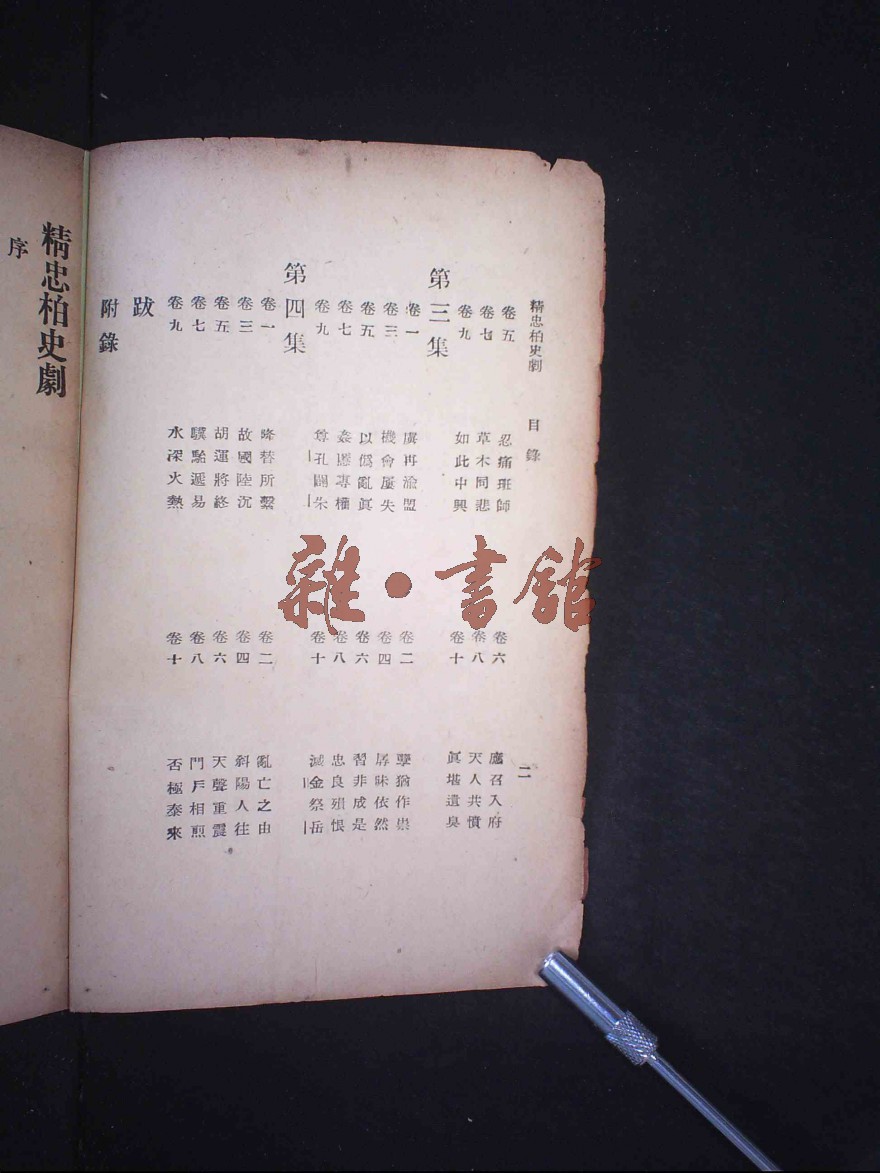 精忠柏史劇 目錄 二
卷五 忍痛班師 卷六 應召入府
卷七 草木同悲 卷八 天人共憤
卷九 如此中興 卷十 眞堪遺臭
第三集
卷一 虞再渝盟 卷二 孽猶作祟
卷三 機會屢失 卷四 孱昧依然
卷五 以僞亂眞 卷六 習非成是
卷七 姦慝專權 卷八 忠良殞恨
卷九 尊孔闢朱 卷十 滅金祭岳
第四集
卷一 隆替所繫 卷二 亂亡之由
卷三 故國陸沉 卷四 斜陽人往
卷五 胡運將終 卷六 天聲重震
卷七 驥駘遞易 卷八 門戶相煎
卷九 水深火熱 卷十 否極泰來
跋
附錄
精忠柏史劇
序
雜·書館